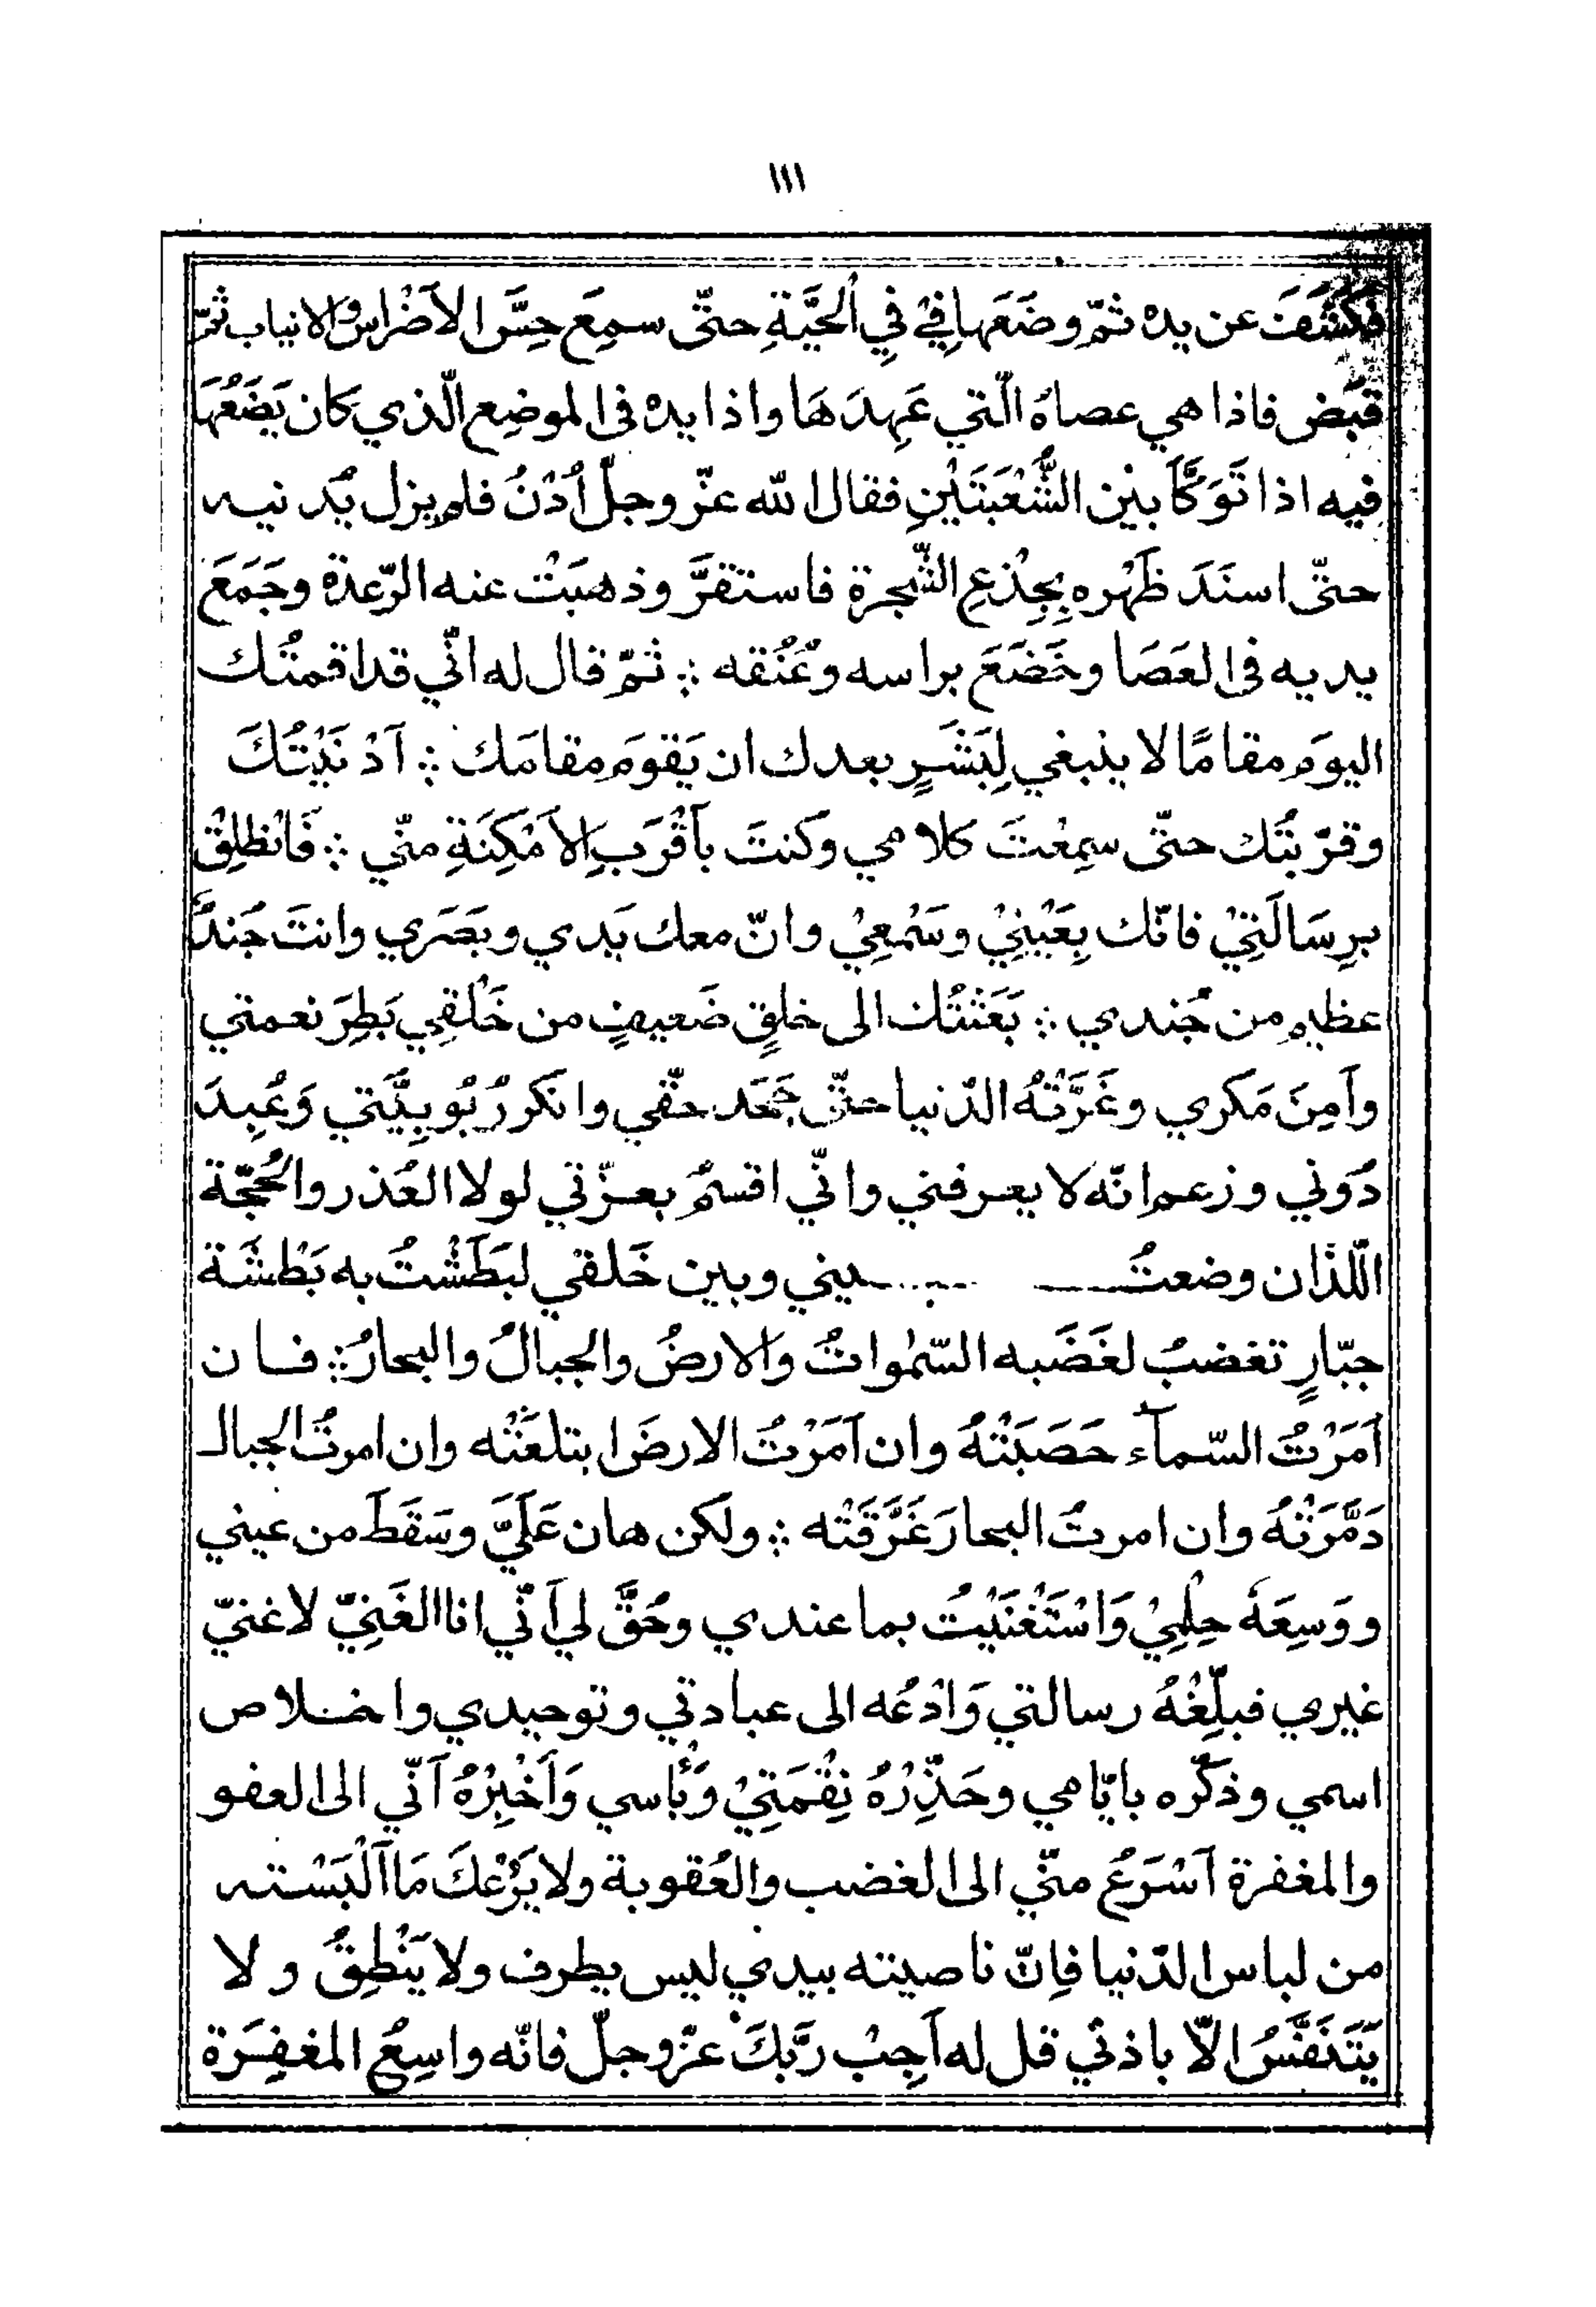 ١١١
فَكَشَفَ عن يده ثمّ وضَعَها فِيْ فِي اُلحَيَّةِ حتّى سمِعَ حِسَّ الاَضْراسِ والانياب ثمّ
قبَض فاذا هي عصاهُ الّتي عَهِدَهَا واذا يدهُ فى الموضِع الّذي كان يَضَعُهَا
فيه اذا تَوَكَّأَ بيْن الشُّعْبَتَيْنِ فقال الله عزّ وجلّ اُدْنُ فلم يزل يُدنيه
حتّى اسنَدَ ظَهْره بِجِذعِ الشّجرة فاستقرَّ وذهبَتْ عنه الرّعدة وجَمَعَ
يديه فى العَصَا وخَضَعَ براسه وعُنُقه ∴ ثمّ قال له انّي قد اقمتُك
اليومَ مقامًا لا ينبغي لِبَشَرٍ بعدك ان يَقومَ مقامَك ∴ اَدْنَيْتُكَ
وقرّبتُك حتّى سمِعْتَ كلامي وكنتَ بأَقْرَبِ الاَمْكِنَةِ منّي ∴ فَانْطلِقْ
برِسَالَتِيْ فانّك بِعَيْنِيْ وسَمْعِيْ وانّ معك يَدي وبَصَري وانتَ جُندٌ
عظيم من جُندي ∴ بَعَثتُك الى خلقٍ ضَعيفٍ من خَلْقِي بَطِرَ نعمتي
وأَمِنَ مَكري وغَرَّتْهُ الدّنيا حتّى جَحَد حقّي وانكر رُبُوبِيَّتي وَعُبِدَ
دُوني وزعم انّه لا يعرفني وانّي اقسمُ بعزّتي لولا العُذر والحُجّة
اللّذان وضعتُ بيني وبين خَلقي لبَطَشْتُ به بَطْشَة
جبّارٍ تغضبُ لغَضَبه السّمٰواتُ والارضُ والجبالُ والبحارُ ∴ فان
اَمَرْتُ السّمآء حَصَبَتْهُ وان اَمَرْتُ الارضَ ابتلعَتْه وان امرتُ الجبال
دَمَّرَتْهُ وان امرتُ البحارَ غَرَّقَتْه ∴ ولكن هان عَلَيَّ وسَقَطَ من عيني
ووَسِعَهُ حِلْمِيْ وَاسْتَغْنَيْتُ بما عندي وحُقَّ لي اَنّي انا الغَنِيّ لا غنيّ
غيري فبلّغْهُ رسالتي وَادْعُه الى عبادتي وتوحيدي واخلاص
اسمي وذكّره بايّامي وحَذِّرْهُ نِقْمَتِيْ وَبَأسي وَأَخْبِرْهُ اَنّي الى العفو
والمغفرة اَسْرَعُ منّي الى الغضب والعُقوبة ولا يَرُعْكَ مَا اَلْبَسْته
من لباس الدّنيا فاِنّ ناصيته بيدي ليس يطرف ولا يَنْطِقُ ولا
يَتَنَفَّسُ الاّ باذني قل له اَجِبْ رَبَّكَ عزّوجلّ فانّه واسِعُ المغفِرَة